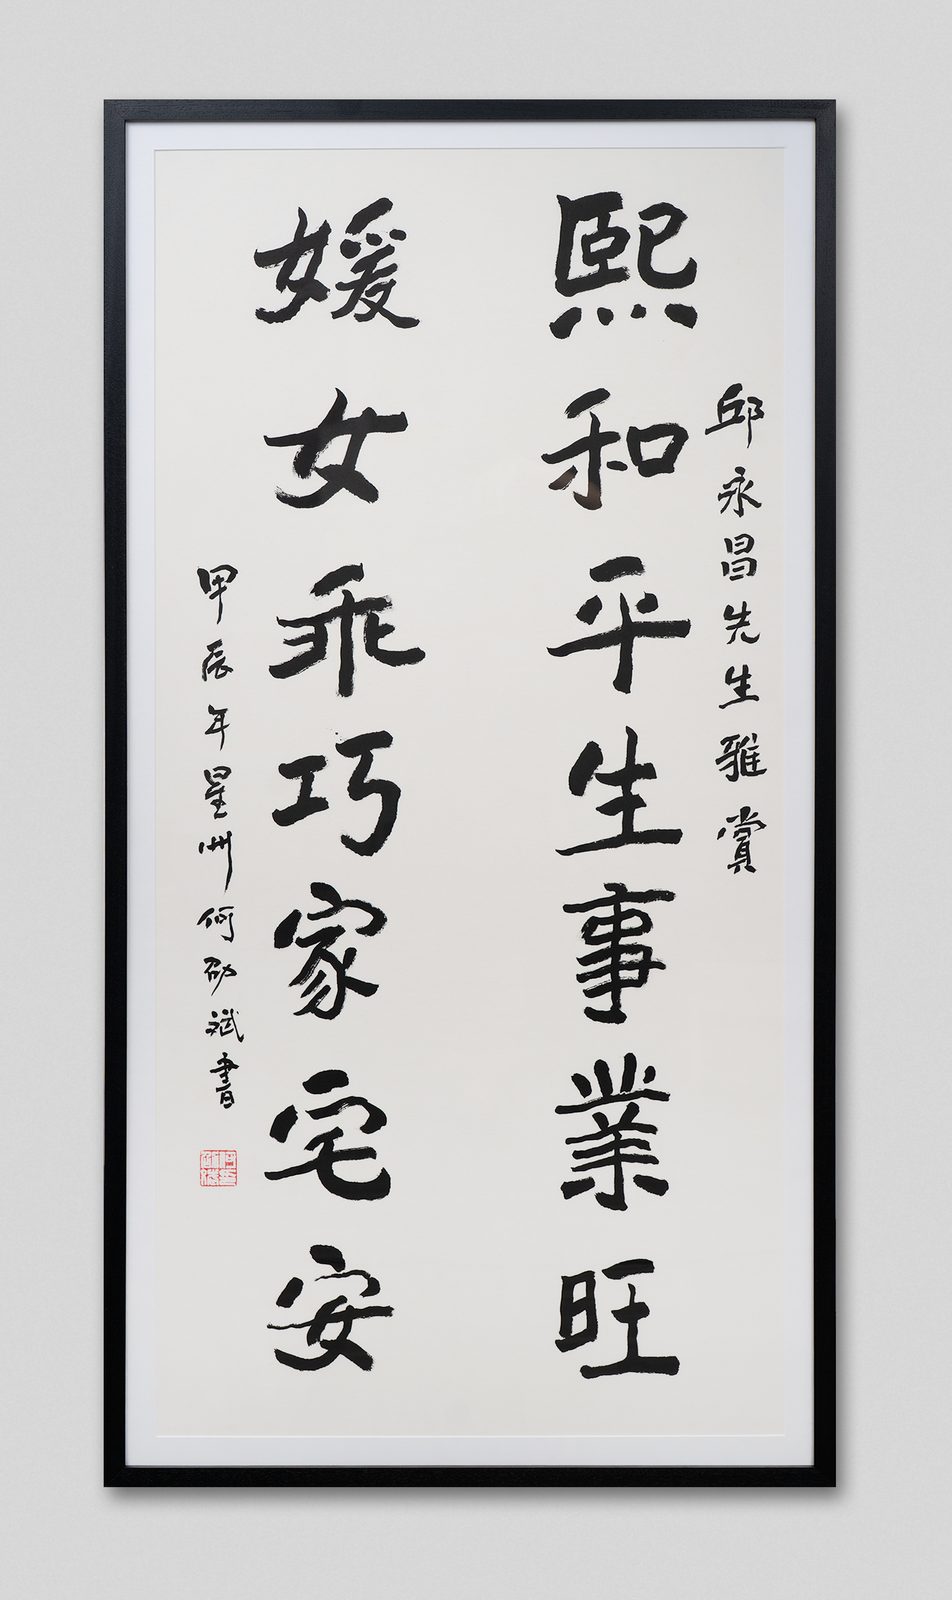 邱永昌先生雅賞
熙和平生事業旺
媛女乖巧家宅安
甲辰年星洲何劭斌書